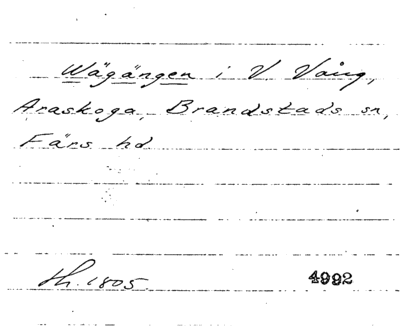 Wägängen i V Vång,
Araskoga, Brandstads sn,
Färs hd
Sh. 1805.
4992